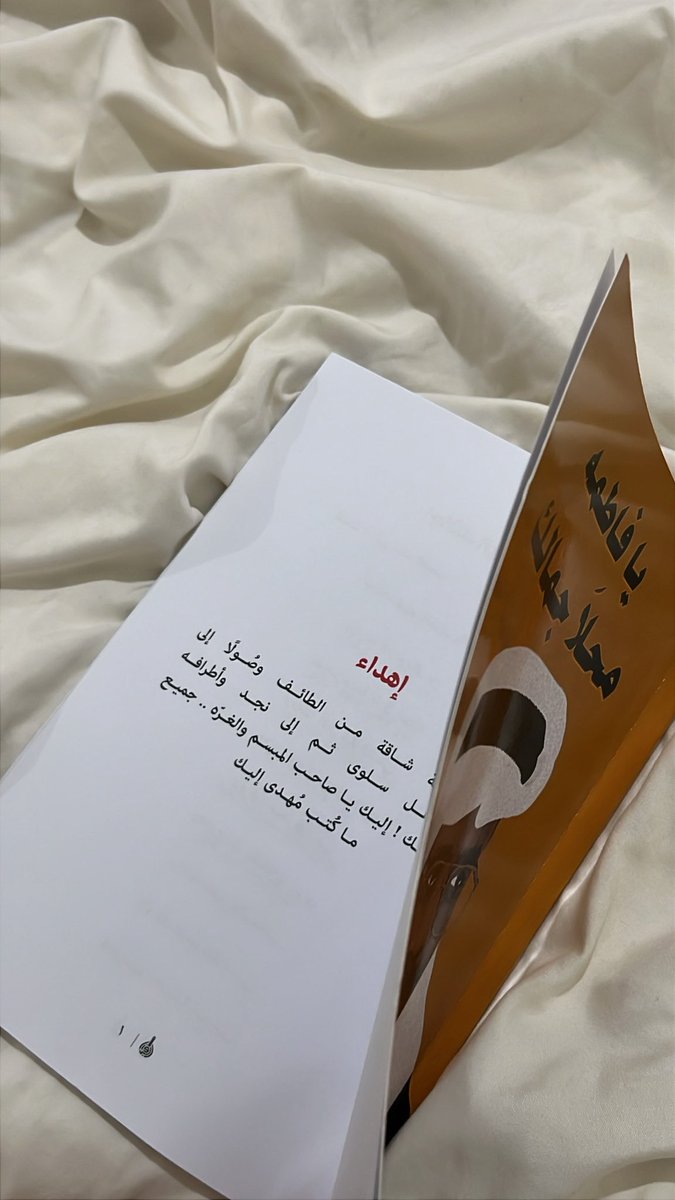 يا فاطمه
محلا جمالك
إهداء
شاقة من الطائف وصُولًا إلى
سلوى ثم إلى نجد وأطرافه
! إليك يا صاحب المبسم والغرّه .. جميع
ما كُتب مُهدى إليك
١